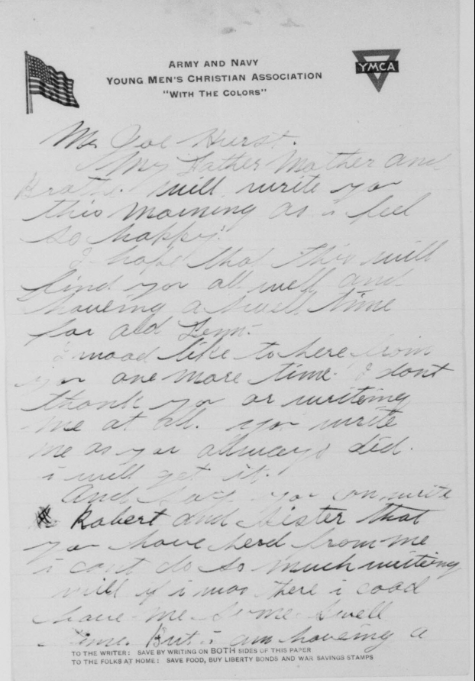 ARMY AND NAVY
YOUNG MEN'S CHRISTIAN ASSOCIATION
"WITH THE COLORS"
YMCA
Mr Joe Hurst.
My Father Mother and
Brother will write you
this morning as i feel
so happy.
I hope that this will
find you all well and
haveing a swell time
for old Tenn.
i wood like to here from
you one more time. I dont
thank you ar writeing
me at all. you write
me as you allways did.
i will get it.
And you can write
Robert and Sister that
you have herd from me
i cant do so much writing
well if i was there i cood
have me some swell
time. But i am haveing a
TO THE WRITER: SAVE BY WRITING ON BOTH SIDES OF THIS PAPER
TO THE FOLKS AT HOME: SAVE FOOD, BUY LIBERTY BONDS AND WAR SAVINGS STAMPS